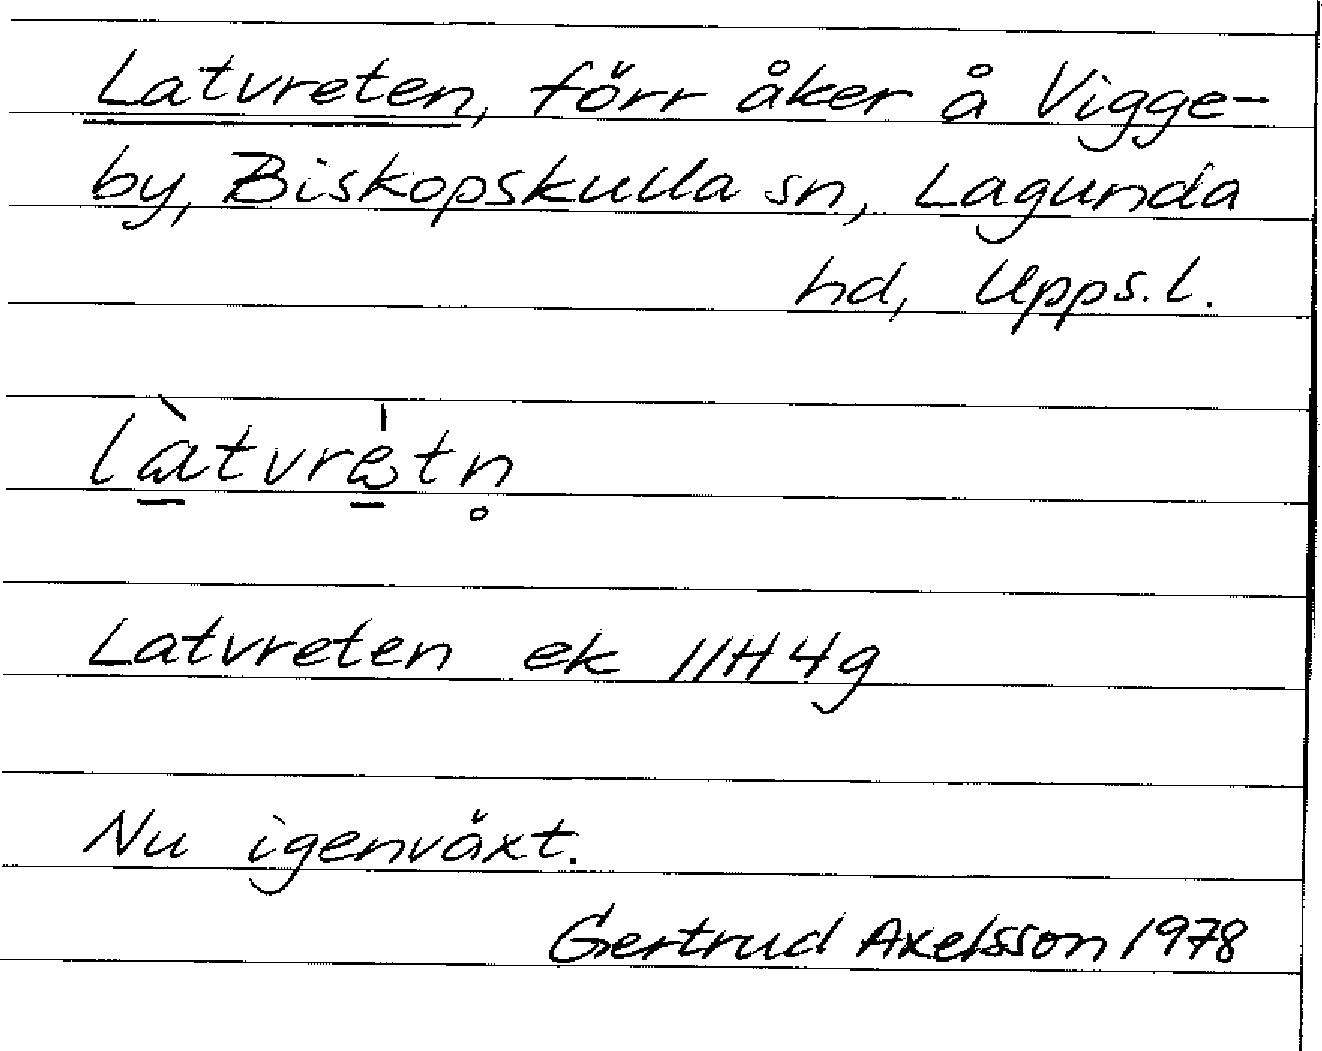 Latvreten, förr åker å Vigge-
by, Biskopskulla sn, Lagunda
hd, Upps. l.
Latvreten ek 11H4g
Nu igenväxt.
Gertrud Axelsson 1978